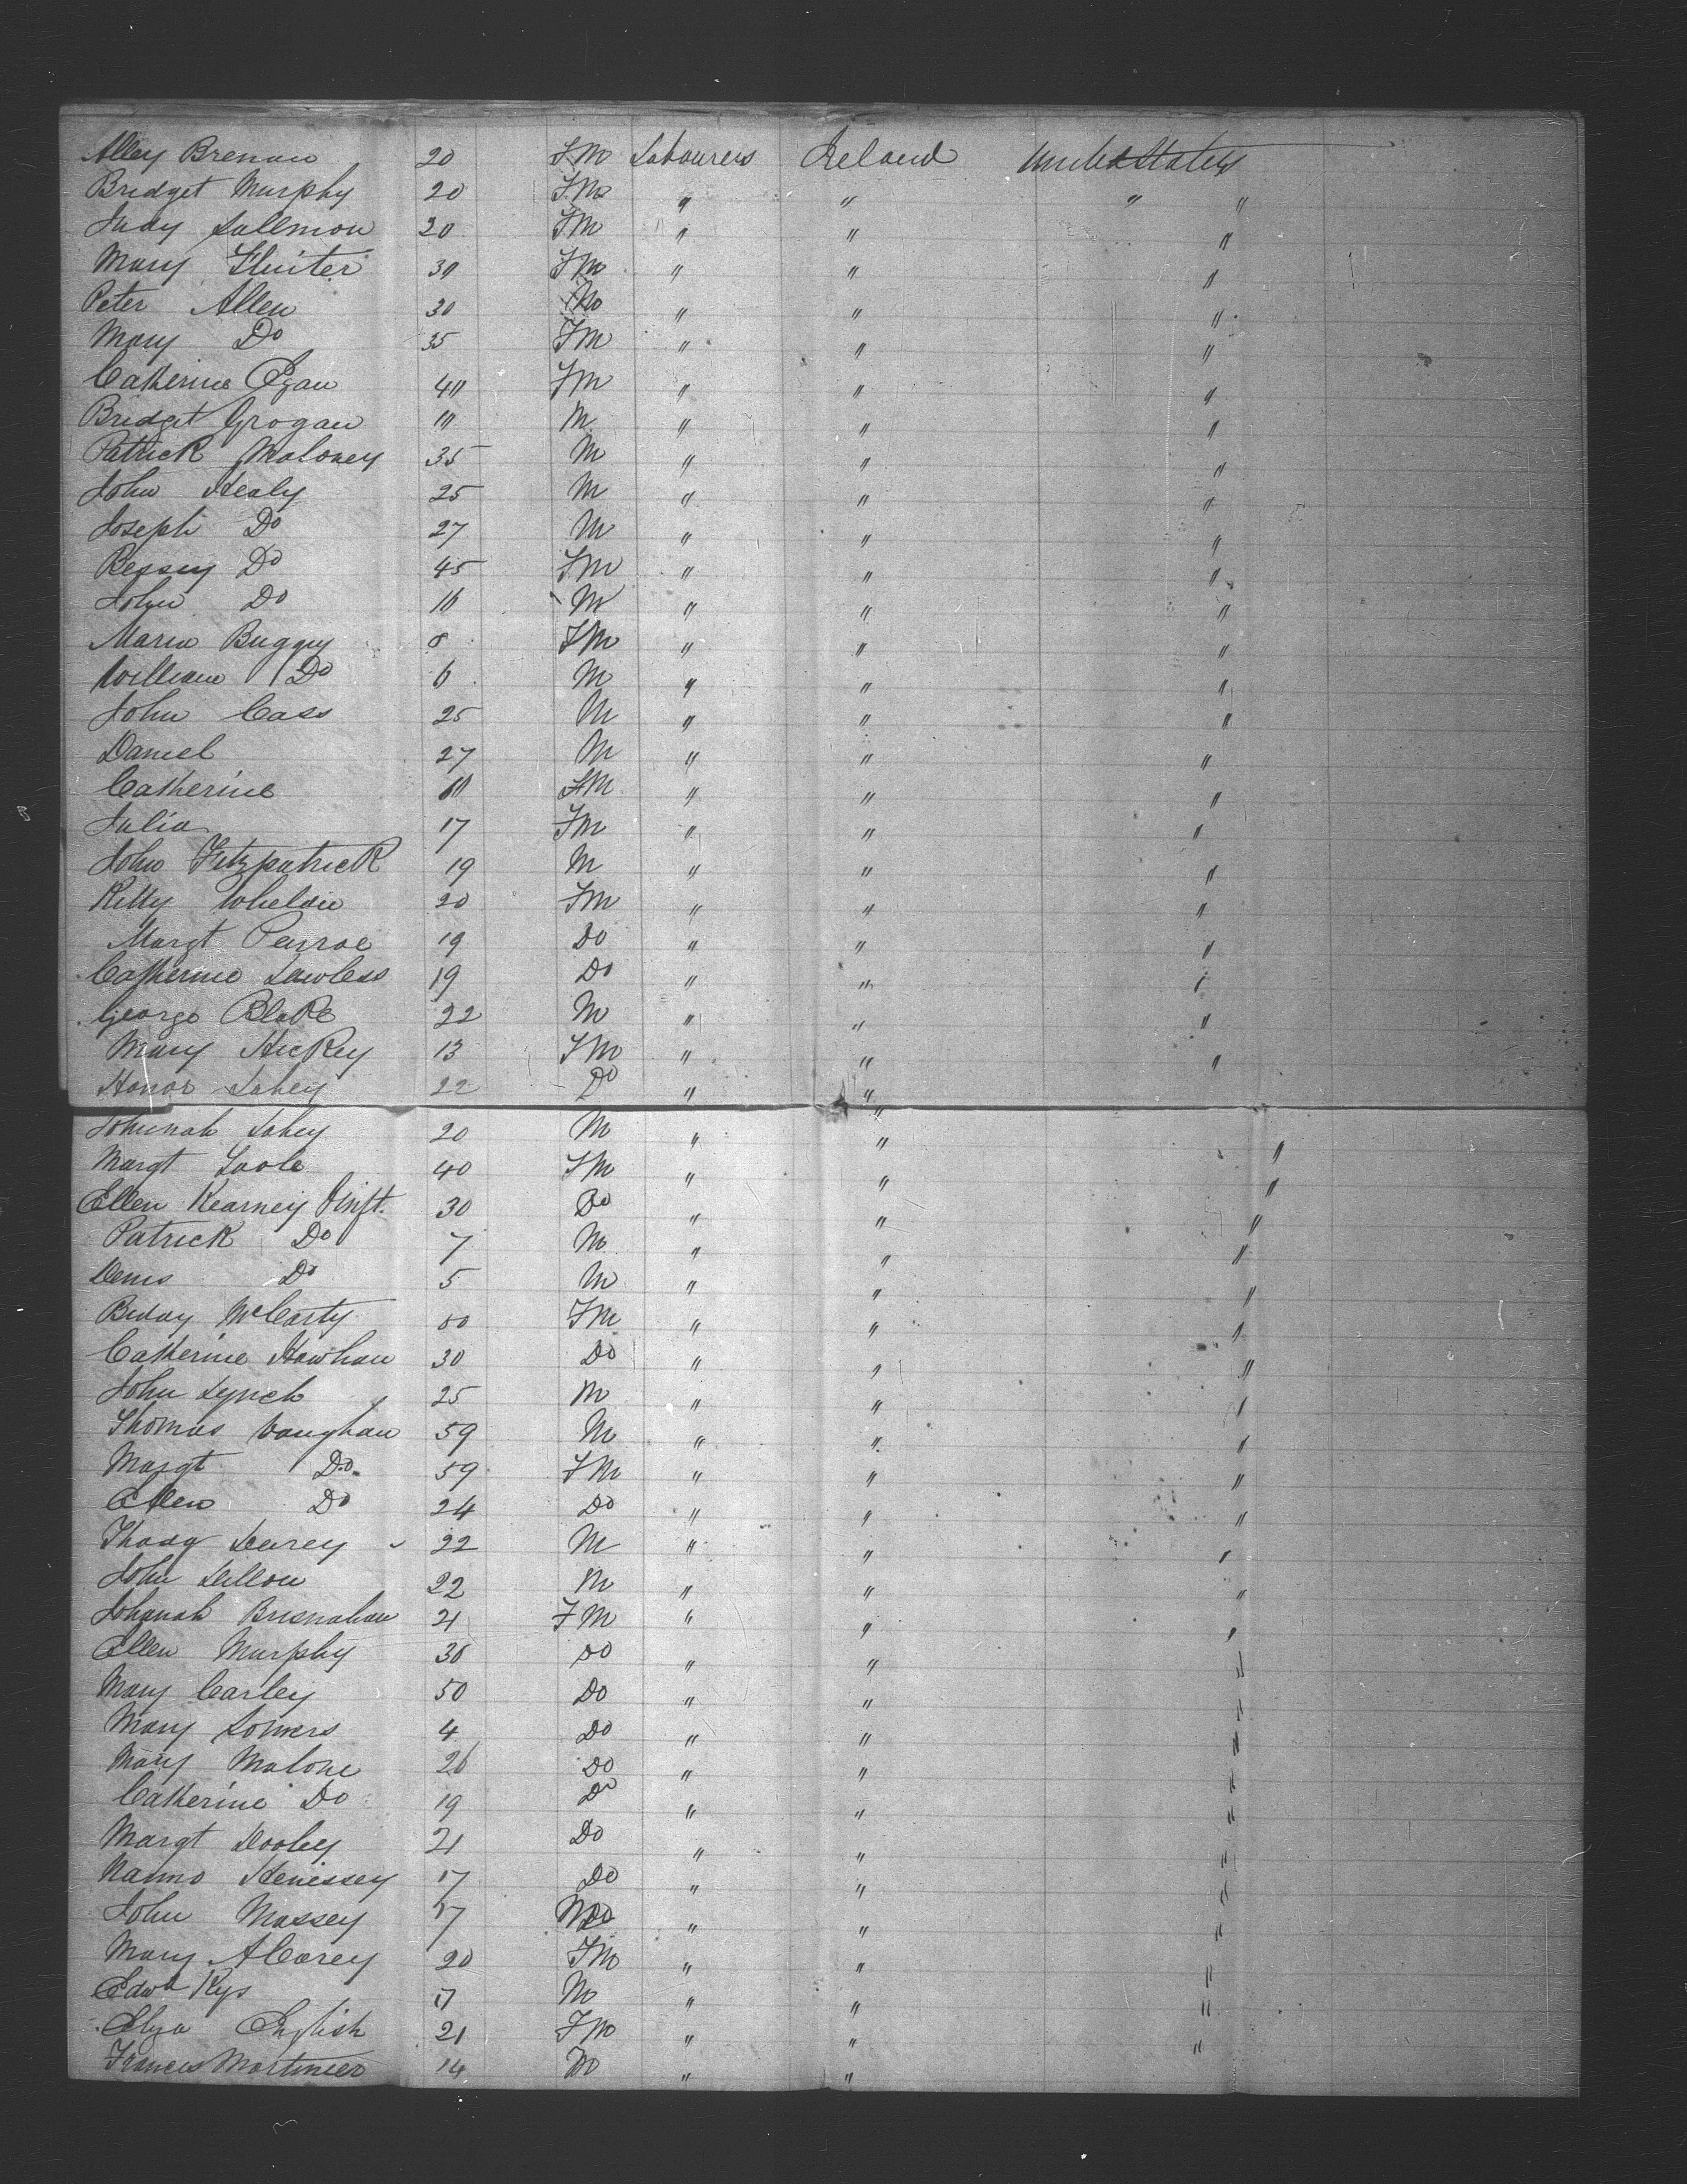 Alley Brenan 20 FM Labourers Ireland United States
Bridget Murphy 20 FM " " " "
Judy Sallmon 20 FM " " "
Mary Fluiter 30 FM " " "
Peter Allen 30 M " " "
Mary Do 35 FM " " "
Catherine Egan 40 FM " " "
Bridget Grogan 10 M " " "
Patrick Moloney 35 M " " "
John Healy 25 M " " "
Joseph Do 27 M " " "
Bessey Do 45 FM " " "
John Do 16 M " " "
Maria Buggy 8 FM " " "
William Do 6 M " " "
John Cass 25 M " " "
Daniel 27 M " " "
Catherine 60 FM " " "
Julia 17 FM " " "
John Fitzpatrick 19 M " " "
Kitty Whelan 20 FM " " "
Margt Penroe 19 Do " " "
Catherine Lawless 19 Do " " "
George Blake 22 M " " "
Mary Hickey 13 FM " " "
Honor Lahey 22 Do " "
Johenah Lahey 20 M " " "
Margt Toole 40 FM " " "
Ellen Kearney & Inft. 30 Do " " "
Patrick Do 7 M " " "
Denis Do 5 M " " "
Biday McCarty 50 FM " " "
Catherine Hawhan 30 Do " " "
John Lynch 25 M " " "
Thomas Vaughan 59 M " " "
Margt Do. 59 FM " " "
Ellen Do 24 Do " " "
Thadg Learey 22 M " " "
John Dillon 22 M " " "
Johanah Bresnahan 21 FM " " "
Ellen Murphy 30 Do " " "
Mary Carley 50 Do " " "
Mary Somers 4 Do " " "
Mary Malone 26 Do " " "
Catherine Do 19 Do " " "
Margt Dooley 21 Do " " "
Nanno Henessey 17 Do " " "
John Massey 17 M " " "
Mary A Carey 20 FM " " "
Edwd Kys 17 M " " "
Eliza English 21 FM " " "
Francis Mortimer 14 Do " "